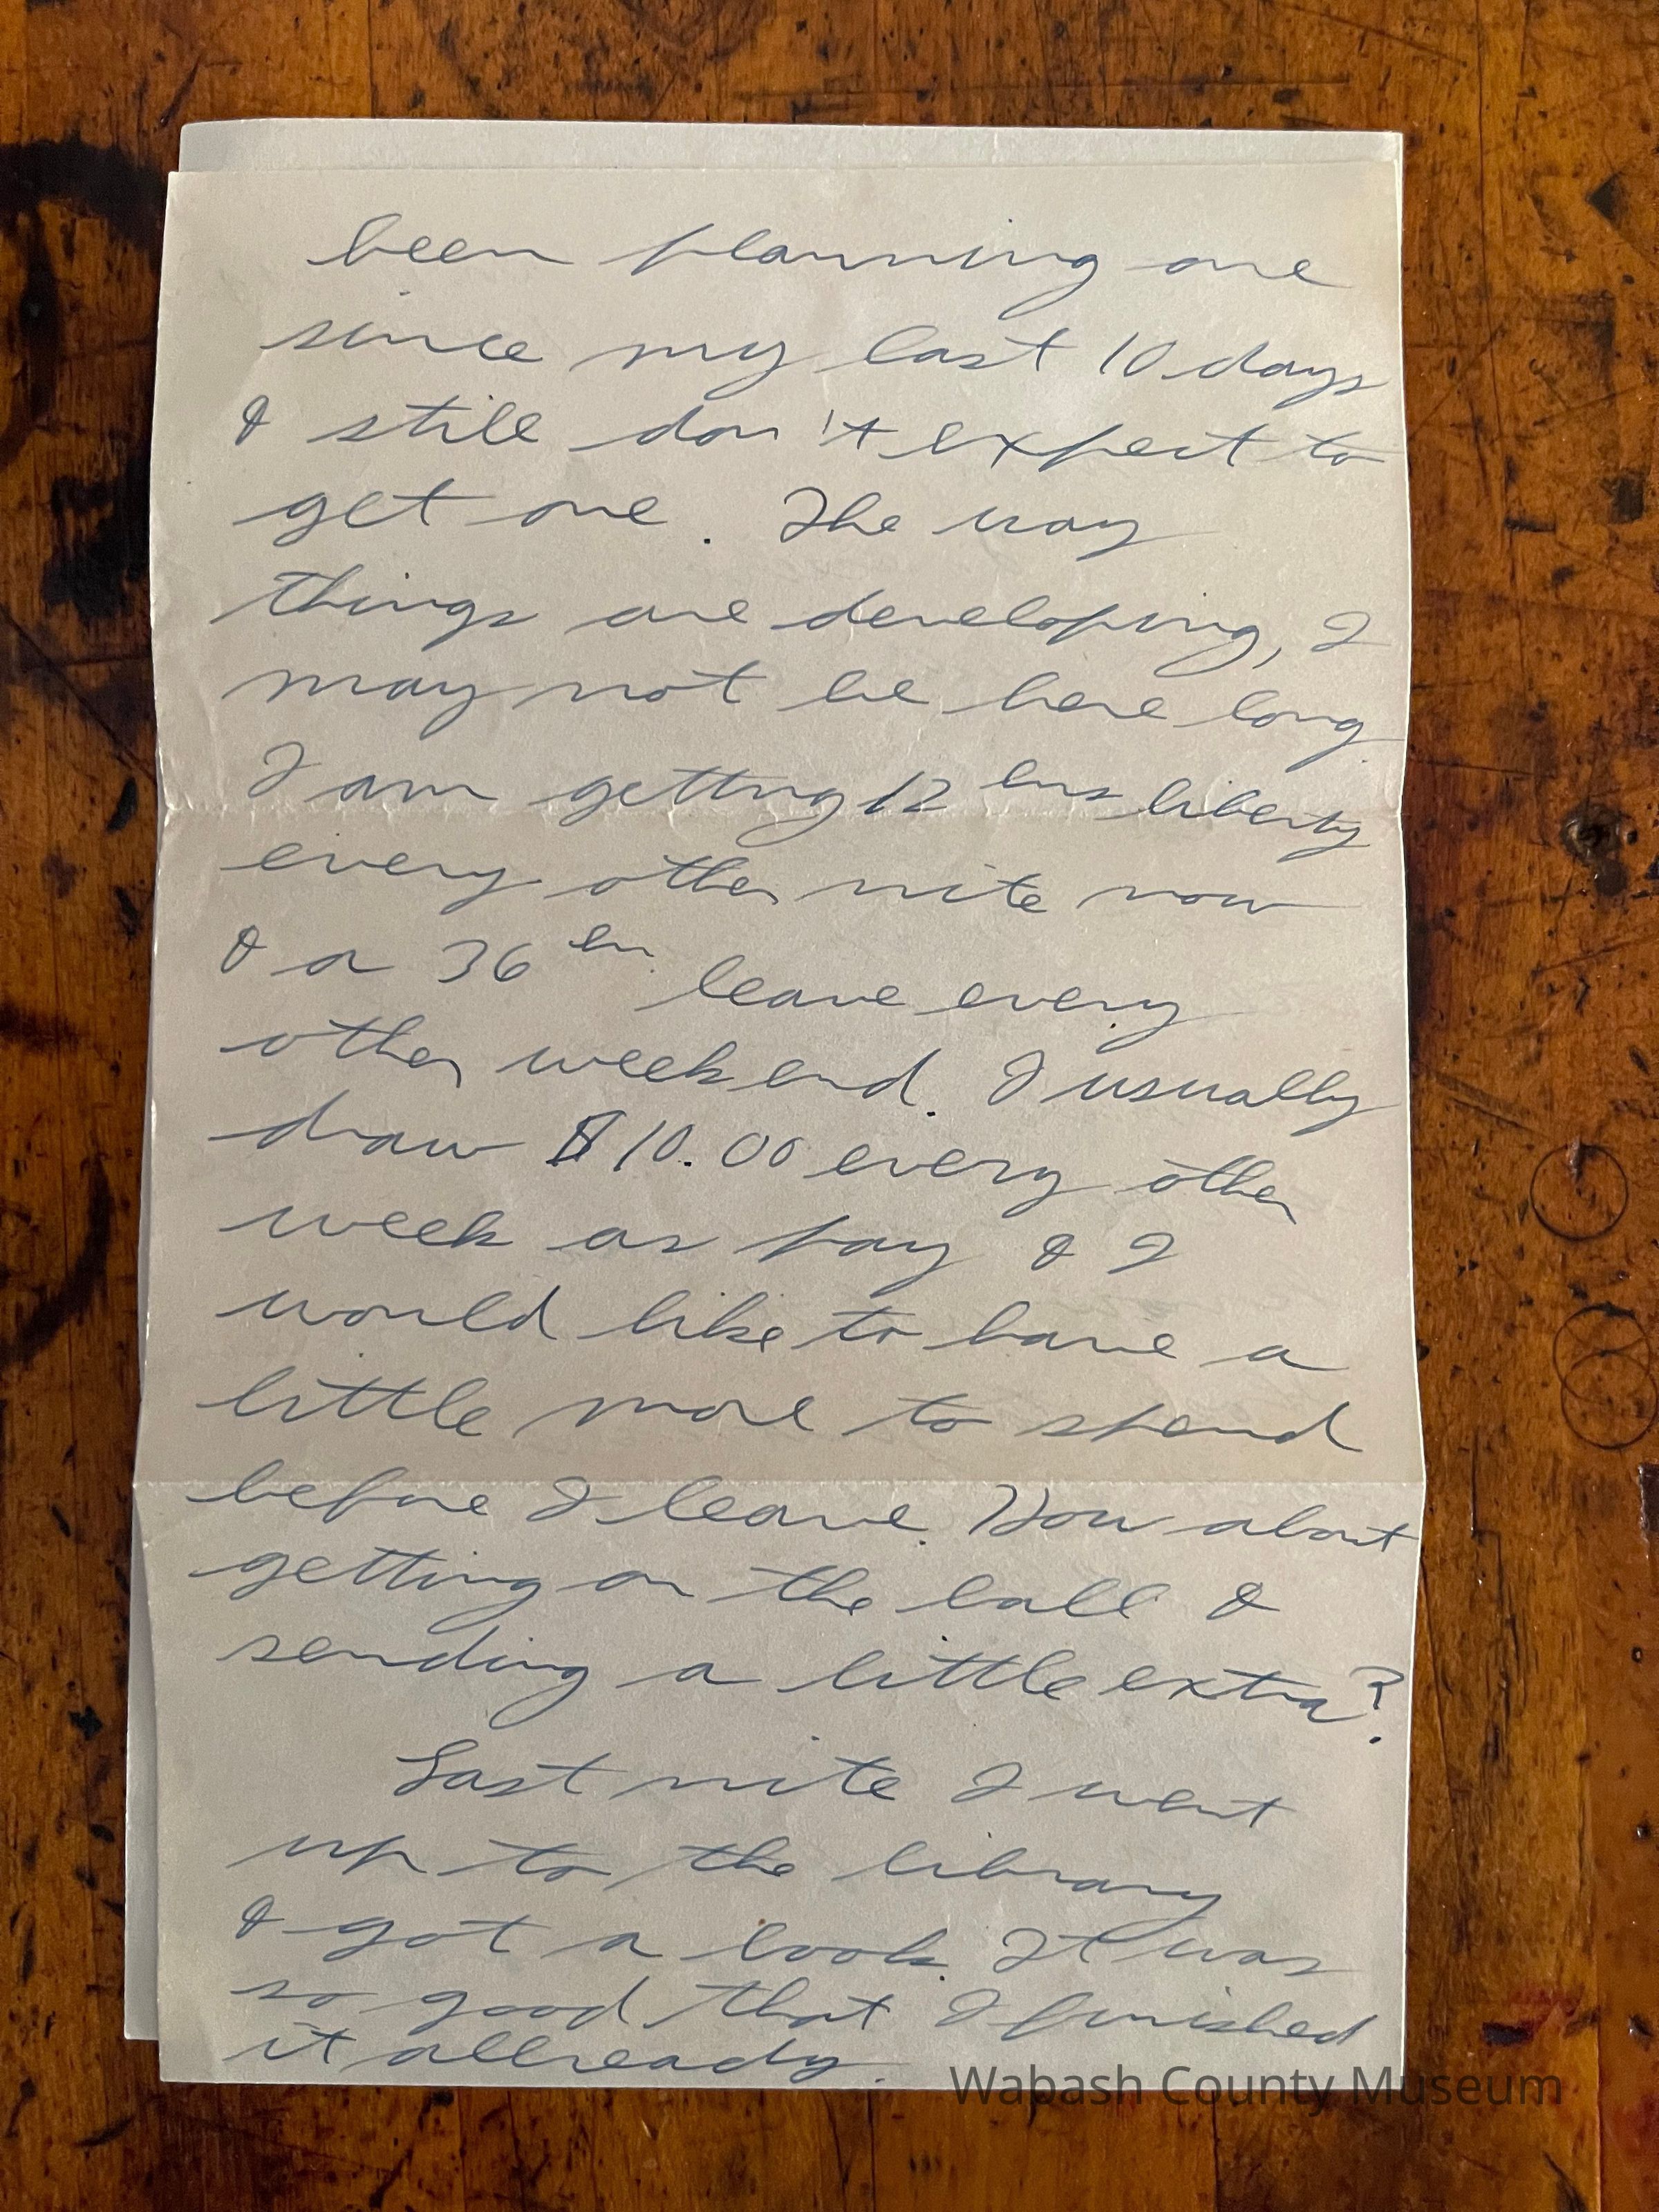 been planning one
since my last 10 days
& still don't expect to
get one. The way
things are developing, I
may not be here long.
I am getting 12 hrs liberty
every other nite now
& a 36 hr. leave every
other weekend. I usually
draw $10.00 every other
week as pay & I
would like to have a
little more to spend
before I leave. How about
getting on the ball &
sending a little extra?
Last nite I went
up to the library
& got a book. It was
so good that I finished
it allready.
Wabash County Museum